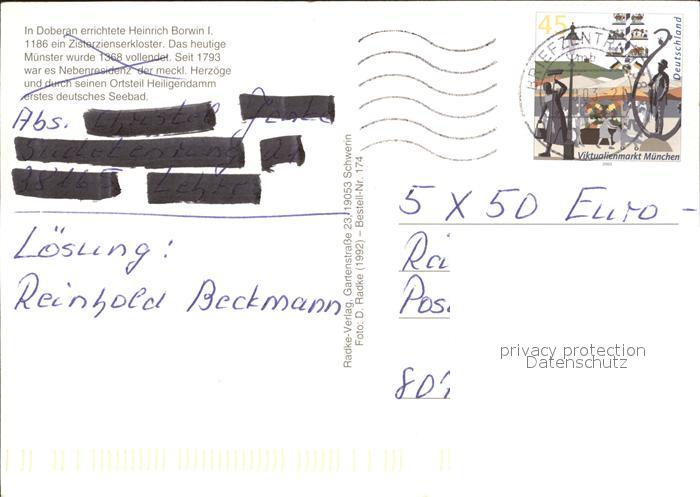 In Doberan errichtete Heinrich Borwin I.
1186 ein Zisterzienserkloster. Das heutige
Münster wurde 1368 vollendet. Seit 1793
war es Nebenresidenz der meckl. Herzöge
und durch seinen Ortsteil Heiligendamm
erstes deutsches Seebad.
Abs.
Lösung:
Reinhold Beckmann
Radke-Verlag, Gartenstraße 23, 19053 Schwerin
Foto: D. Radke (1992) – Bestell-Nr. 174
45
Deutschland
BRIEFZENTR
Viktualienmarkt München
5 X 50 Euro -
Rä
Pos
80
privacy protection
Datenschutz